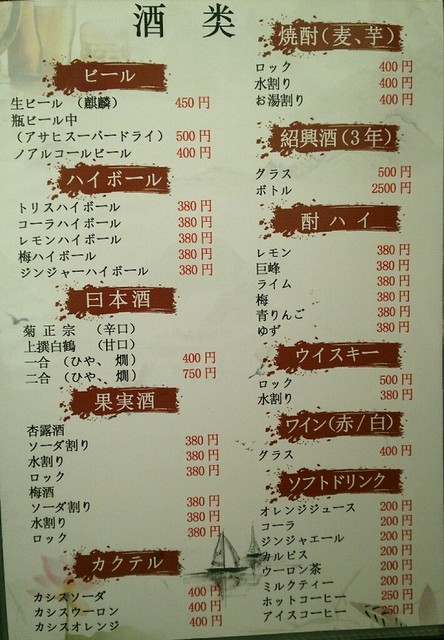 酒类
ビール
生ビール （麒麟） 450円
瓶ビール中
（アサヒスーパードライ） 500円
ノアルコールビール 400円
ハイボール
トリスハイボール 380円
コーラハイボール 380円
レモンハイボール 380円
梅ハイボール 380円
ジンジャーハイボール 380円
日本酒
菊正宗 （辛口）
上撰白鶴 （甘口）
一合 （ひや、燗） 400円
二合 （ひや、燗） 750円
果実酒
杏露酒
ソーダ割り 380円
水割り 380円
ロック 380円
梅酒
ソーダ割り 380円
水割り 380円
ロック 380円
カクテル
カシスソーダ 400円
カシスウーロン 400円
カシスオレンジ 400円
焼酎（麦、芋）
ロック 400円
水割り 400円
お湯割り 400円
紹興酒（3年）
グラス 500円
ボトル 2500円
酎ハイ
レモン 380円
巨峰 380円
ライム 380円
梅 380円
青りんご 380円
ゆず 380円
ウイスキー
ロック 500円
水割り 380円
ワイン（赤/白）
グラス 400円
ソフトドリンク
オレンジジュース 200円
コーラ 200円
ジンジャエール 200円
カルピス 200円
ウーロン茶 200円
ミルクティー 200円
ホットコーヒー 250円
アイスコーヒー 250円